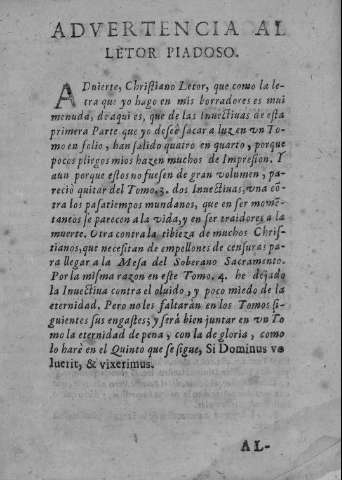 ADVERTENCIA AL
LETOR PIADOSO.
ADuierte, Christiano Letor, que como la le-
tra que yo hago en mis borradores es mui
menuda, de aqui es, que de las Inuectiuas de esta
primera Parte que yo deseè sacar a luz en vn To-
mo en folio, han salido quatro en quarto, porque
pocos pliegos mios hazen muchos de Impresion. Y
aun porque estos no fuesen de gran volumen, pa-
reciò quitar del Tomo. 3. dos Inuectiuas, vna cō-
tra los pasatiempos mundanos, que en ser momē-
taneos se parecen a la vida, y en ser traidores a la
muerte. Otra contra la tibieza de muchos Chris-
tianos, que necesitan de empellones de censuras pa-
ra llegar a la Mesa del Soberano Sacramento.
Por la misma razon en este Tomo. 4. he dejado
la Inuectiua contra el oluido, y poco miedo de la
eternidad. Pero no les faltaràn en los Tomos si-
guientes sus engastes; y serà bien juntar en vn To
mo la eternidad de pena, con la de gloria, como
lo harè en el Quinto que se sigue, Si Dominus vo
luerit, & vixerimus.
AL-